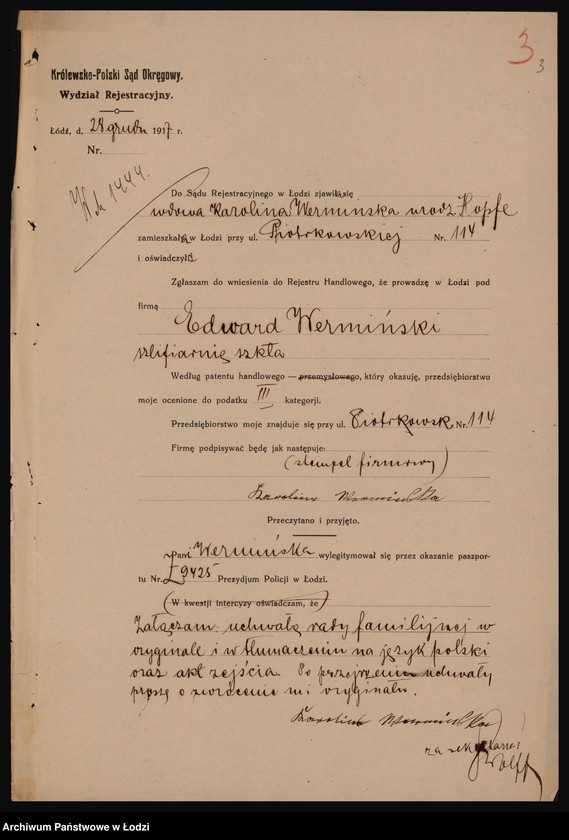 3
3
Królewsko-Polski Sąd Okręgowy.
Wydział Rejestracyjny.
Łódź, d. 28 grudn 1917 r.
Nr.
1444.
Do Sądu Rejestracyjnego w Łodzi zjawiła się
wdowa Karolina Wermińska urodz. Hopfe
zamieszkała w Łodzi przy ul. Piotrkowskiej Nr. 114
i oświadczyła
Zgłaszam do wniesienia do Rejestru Handlowego, że prowadzę w Łodzi pod
firmą
Edward Wermiński
szlifiarnię szkła
Według patentu handlowego — przemysłowego, który okazuję, przedsiębiorstwo
moje ocenione do podatku III kategorji.
Przedsiębiorstwo moje znajduje się przy ul. Piotrkowsk Nr. 114
Firmę podpisywać będę jak następuje:
(stempel firmowy)
Karolina Wermińska
Przeczytano i przyjęto.
Pani Wermińska wylegitymował się przez okazanie paszpor-
tu Nr. 9425 Prezydjum Policji w Łodzi.
(W kwestji intercyzy oświadczam, że)
Załączam: uchwałę rady familijnej w
oryginale i w tłumaczeniu na język polski
oraz akt zejścia. Po przejrzeniu uchwały
proszę o zwrócenie mi oryginału.
Karolina Wermińska
za sekretarza
Wolff
Archiwum Państwowe w Łodzi